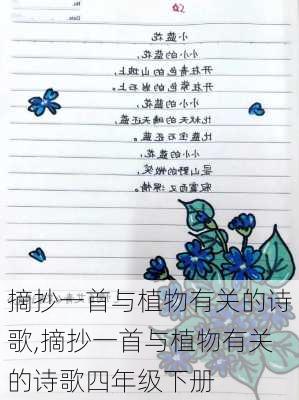 No.
Date.
小蓝花
小小的蓝花,
开在青色的山坡上,
开在紫色的岩石上。
小小的蓝花,
比秋天的晴天还蓝,
比蓝宝石还蓝。
小小的蓝花,
是山野的微笑,
寂寞而又深情。
摘抄一首与植物有关的诗
歌,摘抄一首与植物有关
的诗歌四年级下册